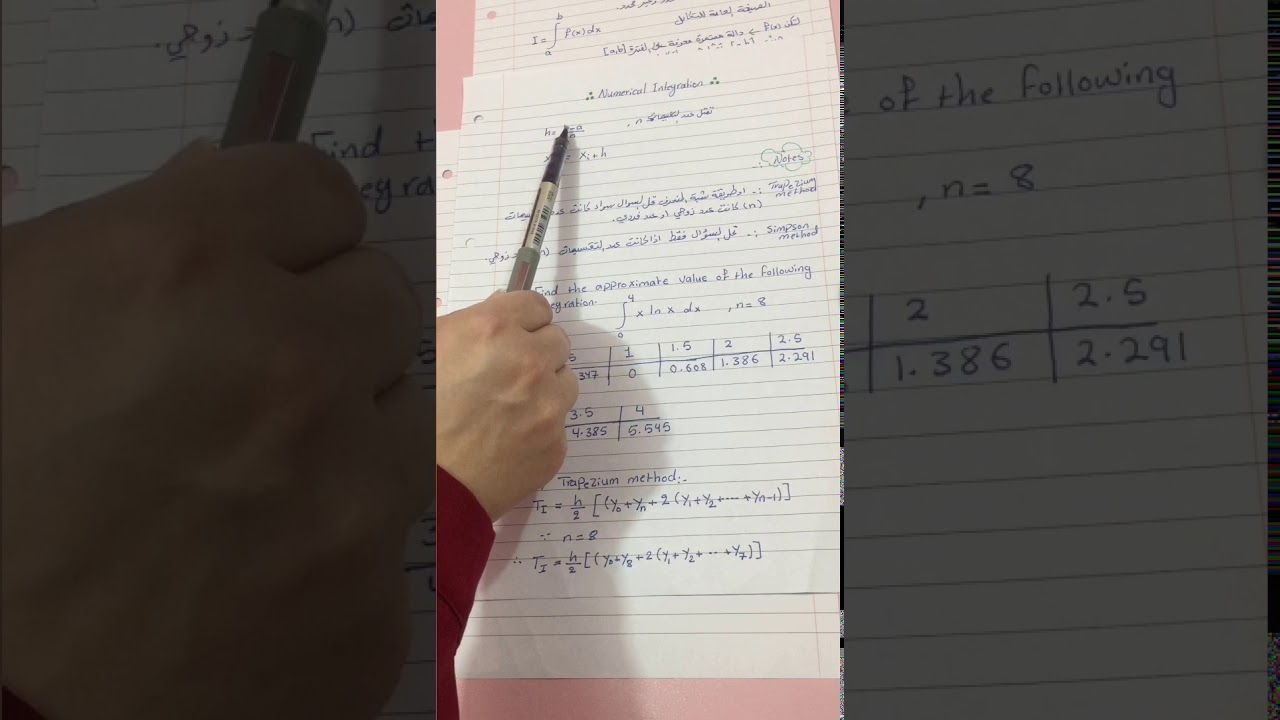 الصيغة العامة للتكامل
I = ∫ₐᵇ f(x) dx
لتكن f(x) ← دالة مستمرة معرفة على الفترة [a,b]
∴ Numerical Integration ∴
h = -a/n , n تمثل عدد التقسيمات
= Xi + h
Notes :-
Trapezium method :- او طريقة شبة المنحرف تحل السؤال سواء كانت عدد
(n) كانت عدد زوجي او عدد فردي.
Simpson method :- تحل السؤال فقط اذا كانت عدد التقسيمات (n زوجي.
Find the approximate value of the following
integration.
∫₀⁴ x ln x dx , n = 8
5 | 1 | 1.5 | 2 | 2.5
347 | 0 | 0.608 | 1.386 | 2.291
3.5 | 4
4.385 | 5.545
Trapezium method:-
T_I = h/2 [(y₀ + yₙ + 2 (y₁ + y₂ + ··· + yn-1)]
∵ n = 8
∴ T_I = h/2 [(y₀ + y₈ + 2 (y₁ + y₂ + ·· + y₇)]
of the following
, n = 8
2 | 2.5
1.386 | 2.291